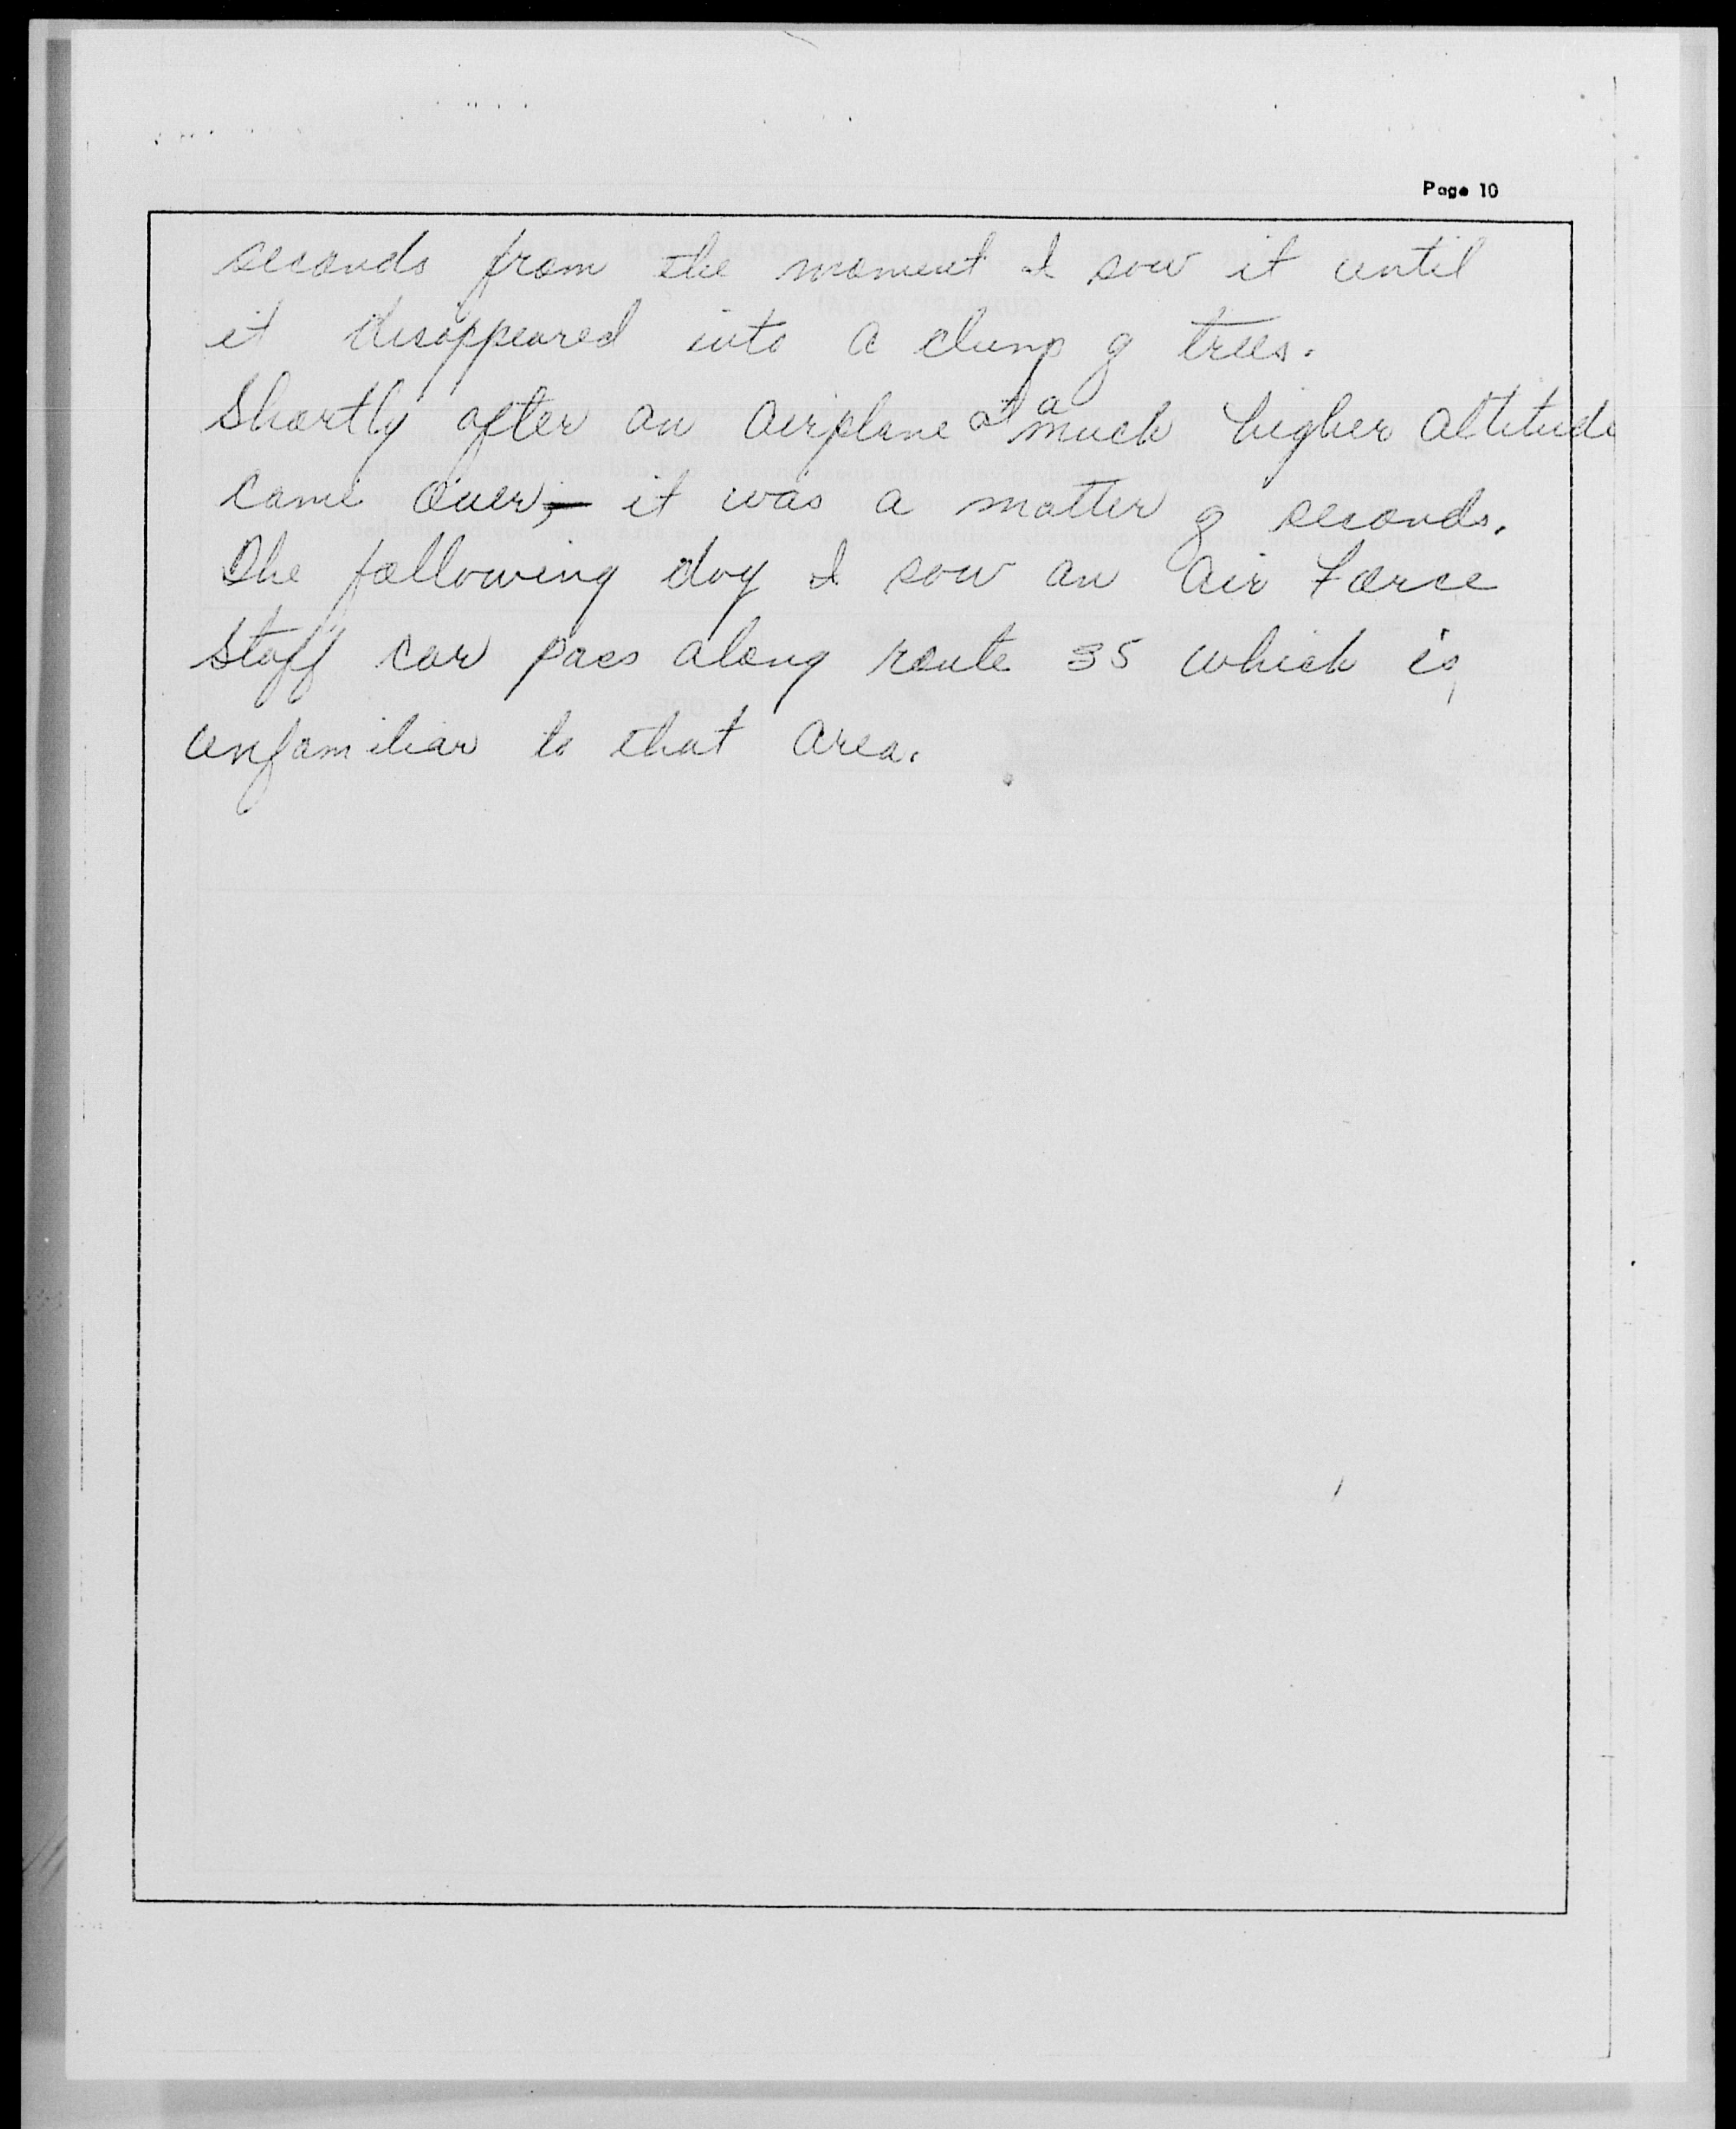 Page 10
seconds from the moment I saw it until
it disappeared into a clump of trees.
Shortly after an airplane at a much higher altitude
came over, it was a matter of seconds.
The following day I saw an Air Force
Staff car pass along route 35 which is
unfamiliar to that area.